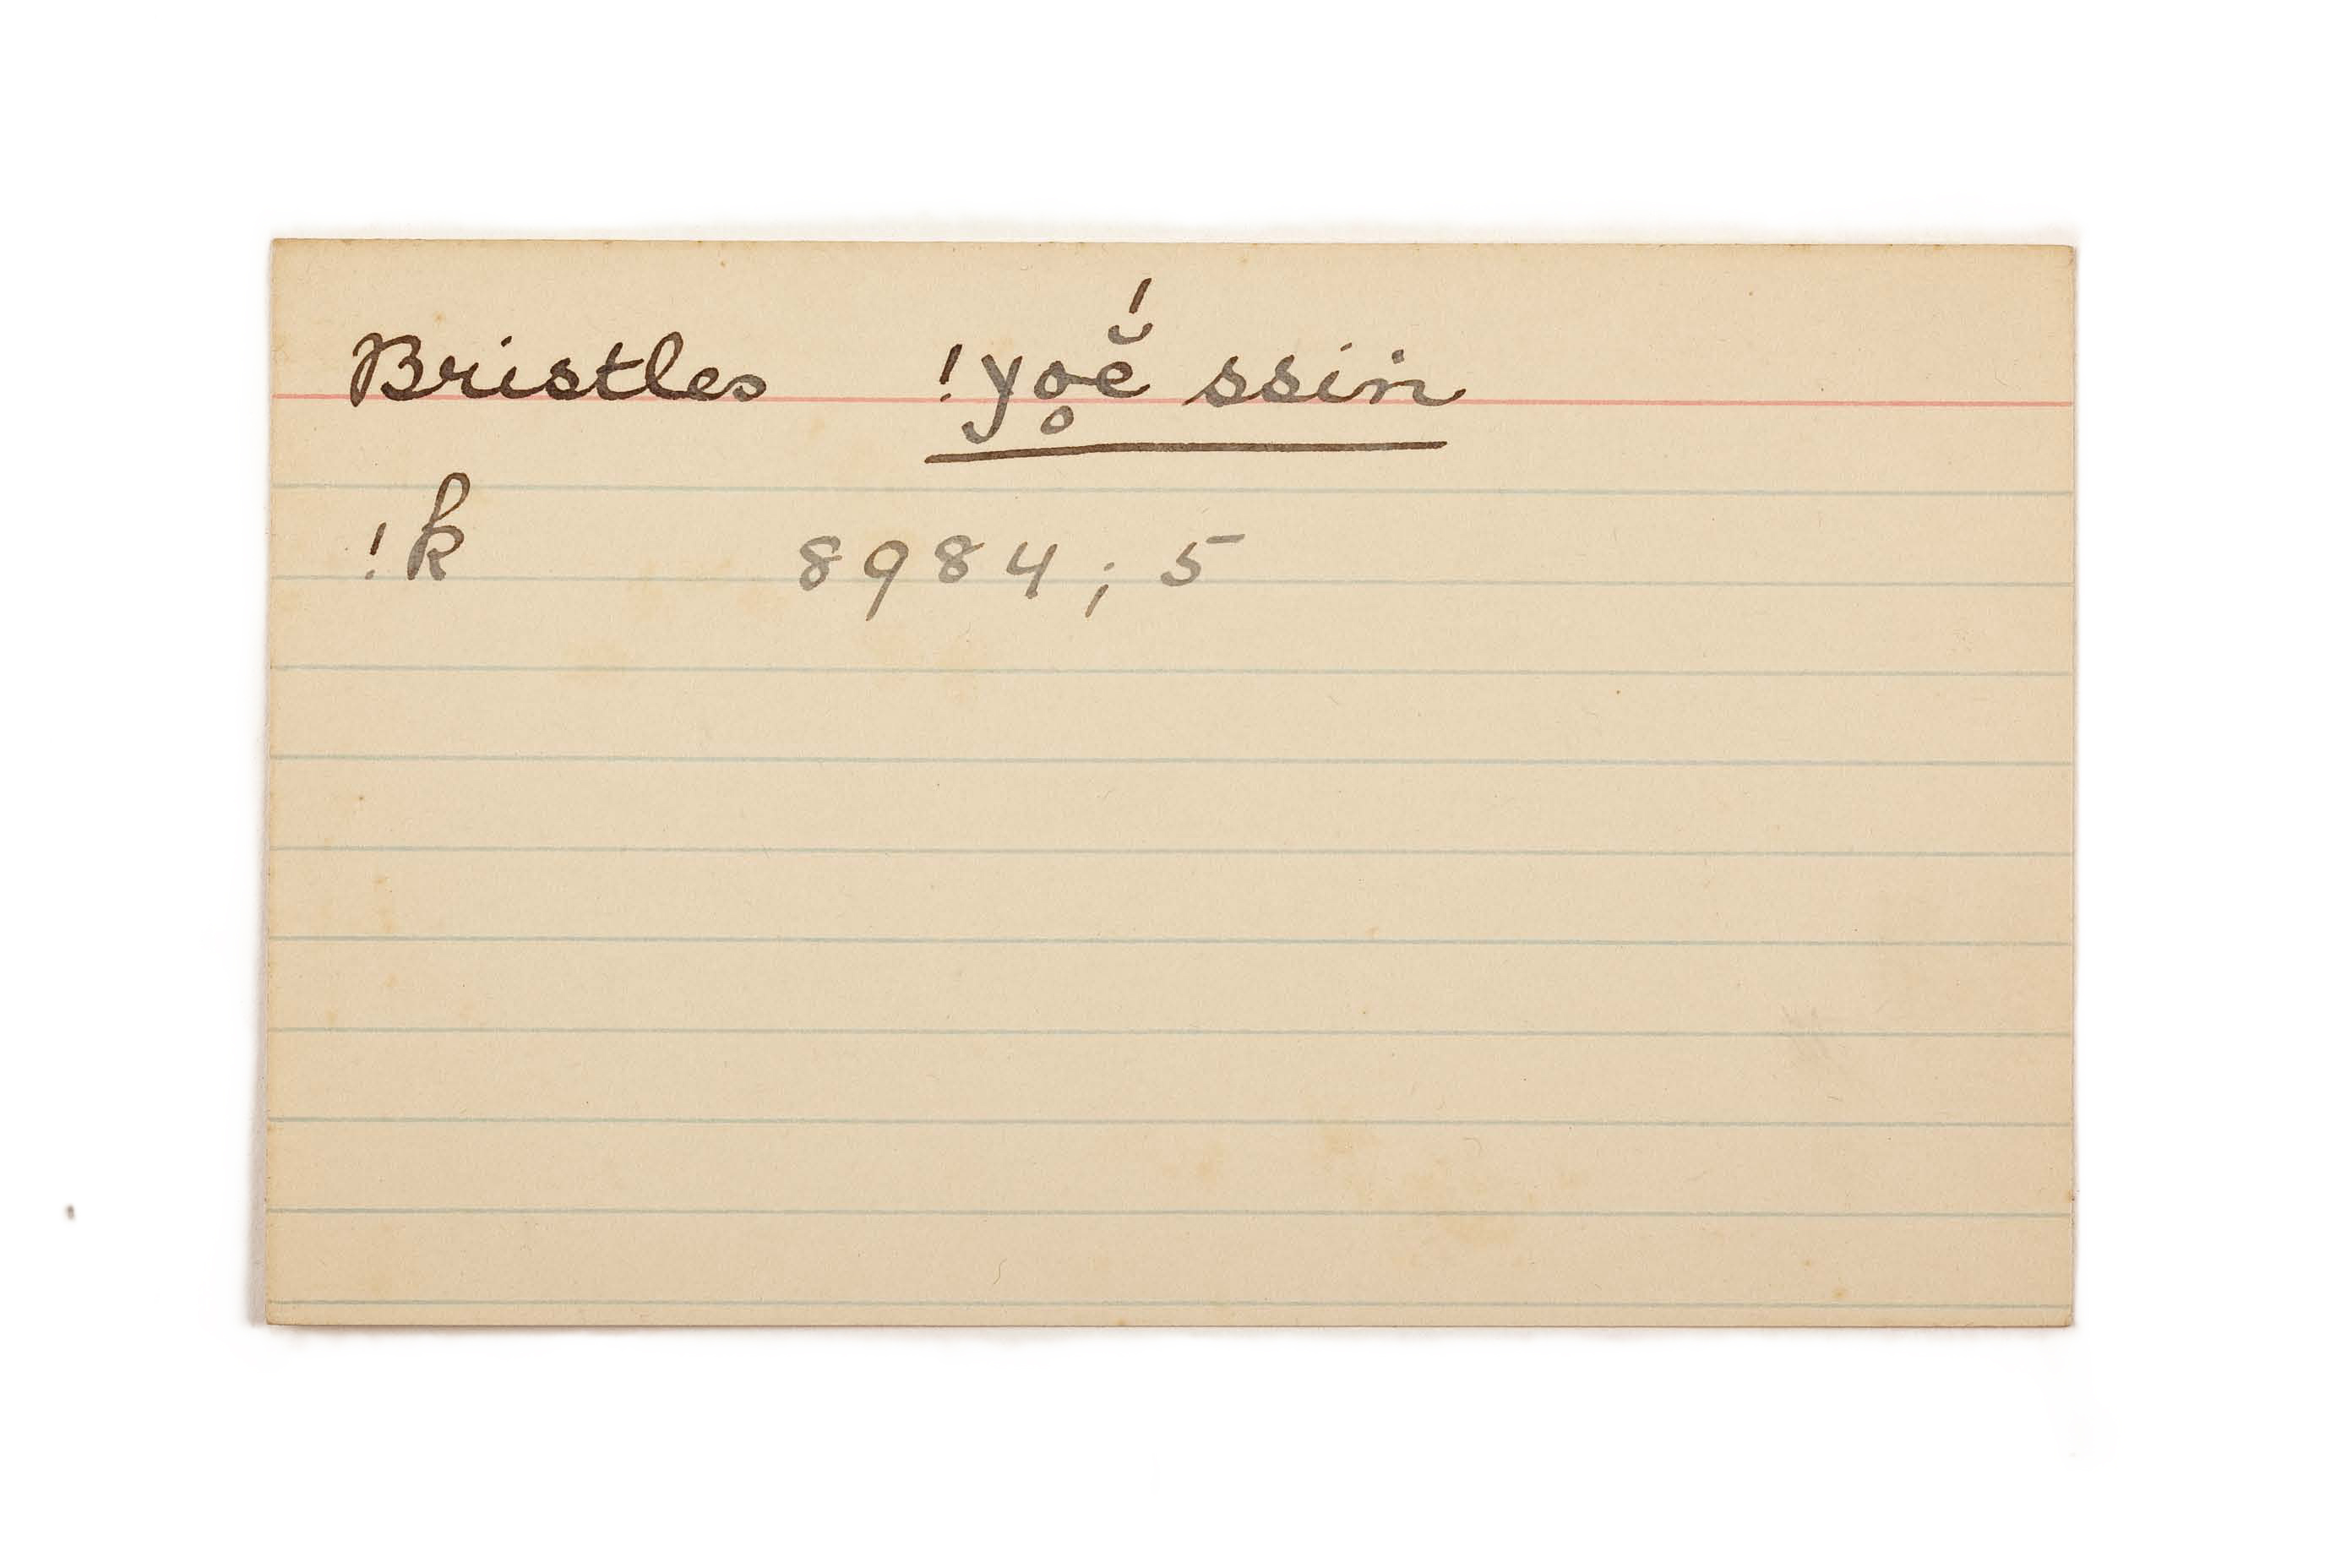 Bristles !yo̥ĕ́ ssiṅ
!k 8984; 5